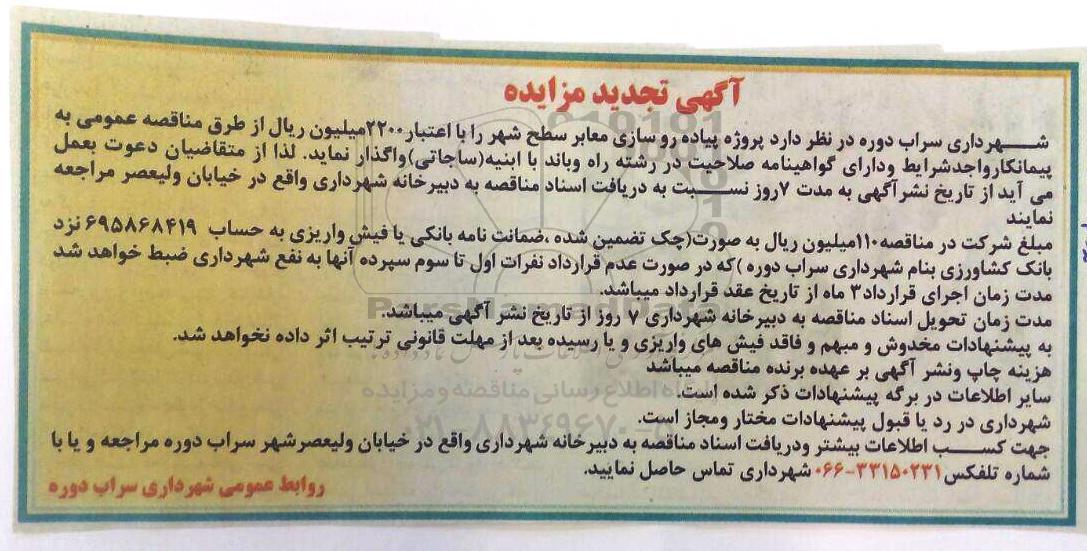 آگهی تجدید مزایده
شهرداری سراب دوره در نظر دارد پروژه پیاده رو سازی معابر سطح شهر را با اعتبار ۲۲۰۰میلیون ریال از طرق مناقصه عمومی به
پیمانکارواجدشرایط ودارای گواهینامه صلاحیت در رشته راه وباند با ابنیه(ساجاتی)واگذار نماید. لذا از متقاضیان دعوت بعمل
می آید از تاریخ نشرآگهی به مدت ۷روز نسبت به دریافت اسناد مناقصه به دبیرخانه شهرداری واقع در خیابان ولیعصر مراجعه
نمایند
مبلغ شرکت در مناقصه۱۱۰میلیون ریال به صورت(چک تضمین شده ،ضمانت نامه بانکی یا فیش واریزی به حساب ۶۹۵۸۶۸۴۱۹ نزد
بانک کشاورزی بنام شهرداری سراب دوره )که در صورت عدم قرارداد نفرات اول تا سوم سپرده آنها به نفع شهرداری ضبط خواهد شد
مدت زمان اجرای قرارداد۳ ماه از تاریخ عقد قرارداد میباشد.
مدت زمان تحویل اسناد مناقصه به دبیرخانه شهرداری ۷ روز از تاریخ نشر آگهی میباشد.
به پیشنهادات مخدوش و مبهم و فاقد فیش های واریزی و یا رسیده بعد از مهلت قانونی ترتیب اثر داده نخواهد شد.
هزینه چاپ ونشر آگهی بر عهده برنده مناقصه میباشد
سایر اطلاعات در برگه پیشنهادات ذکر شده است.
شهرداری در رد یا قبول پیشنهادات مختار ومجاز است.
جهت کسب اطلاعات بیشتر ودریافت اسناد مناقصه به دبیرخانه شهرداری واقع در خیابان ولیعصرشهر سراب دوره مراجعه و یا با
شماره تلفکس۳۳۱۵۰۲۳۱-۰۶۶ شهرداری تماس حاصل نمایید.
روابط عمومی شهرداری سراب دوره
ParsNamadData
پایگاه اطلاع رسانی مناقصه و مزایده